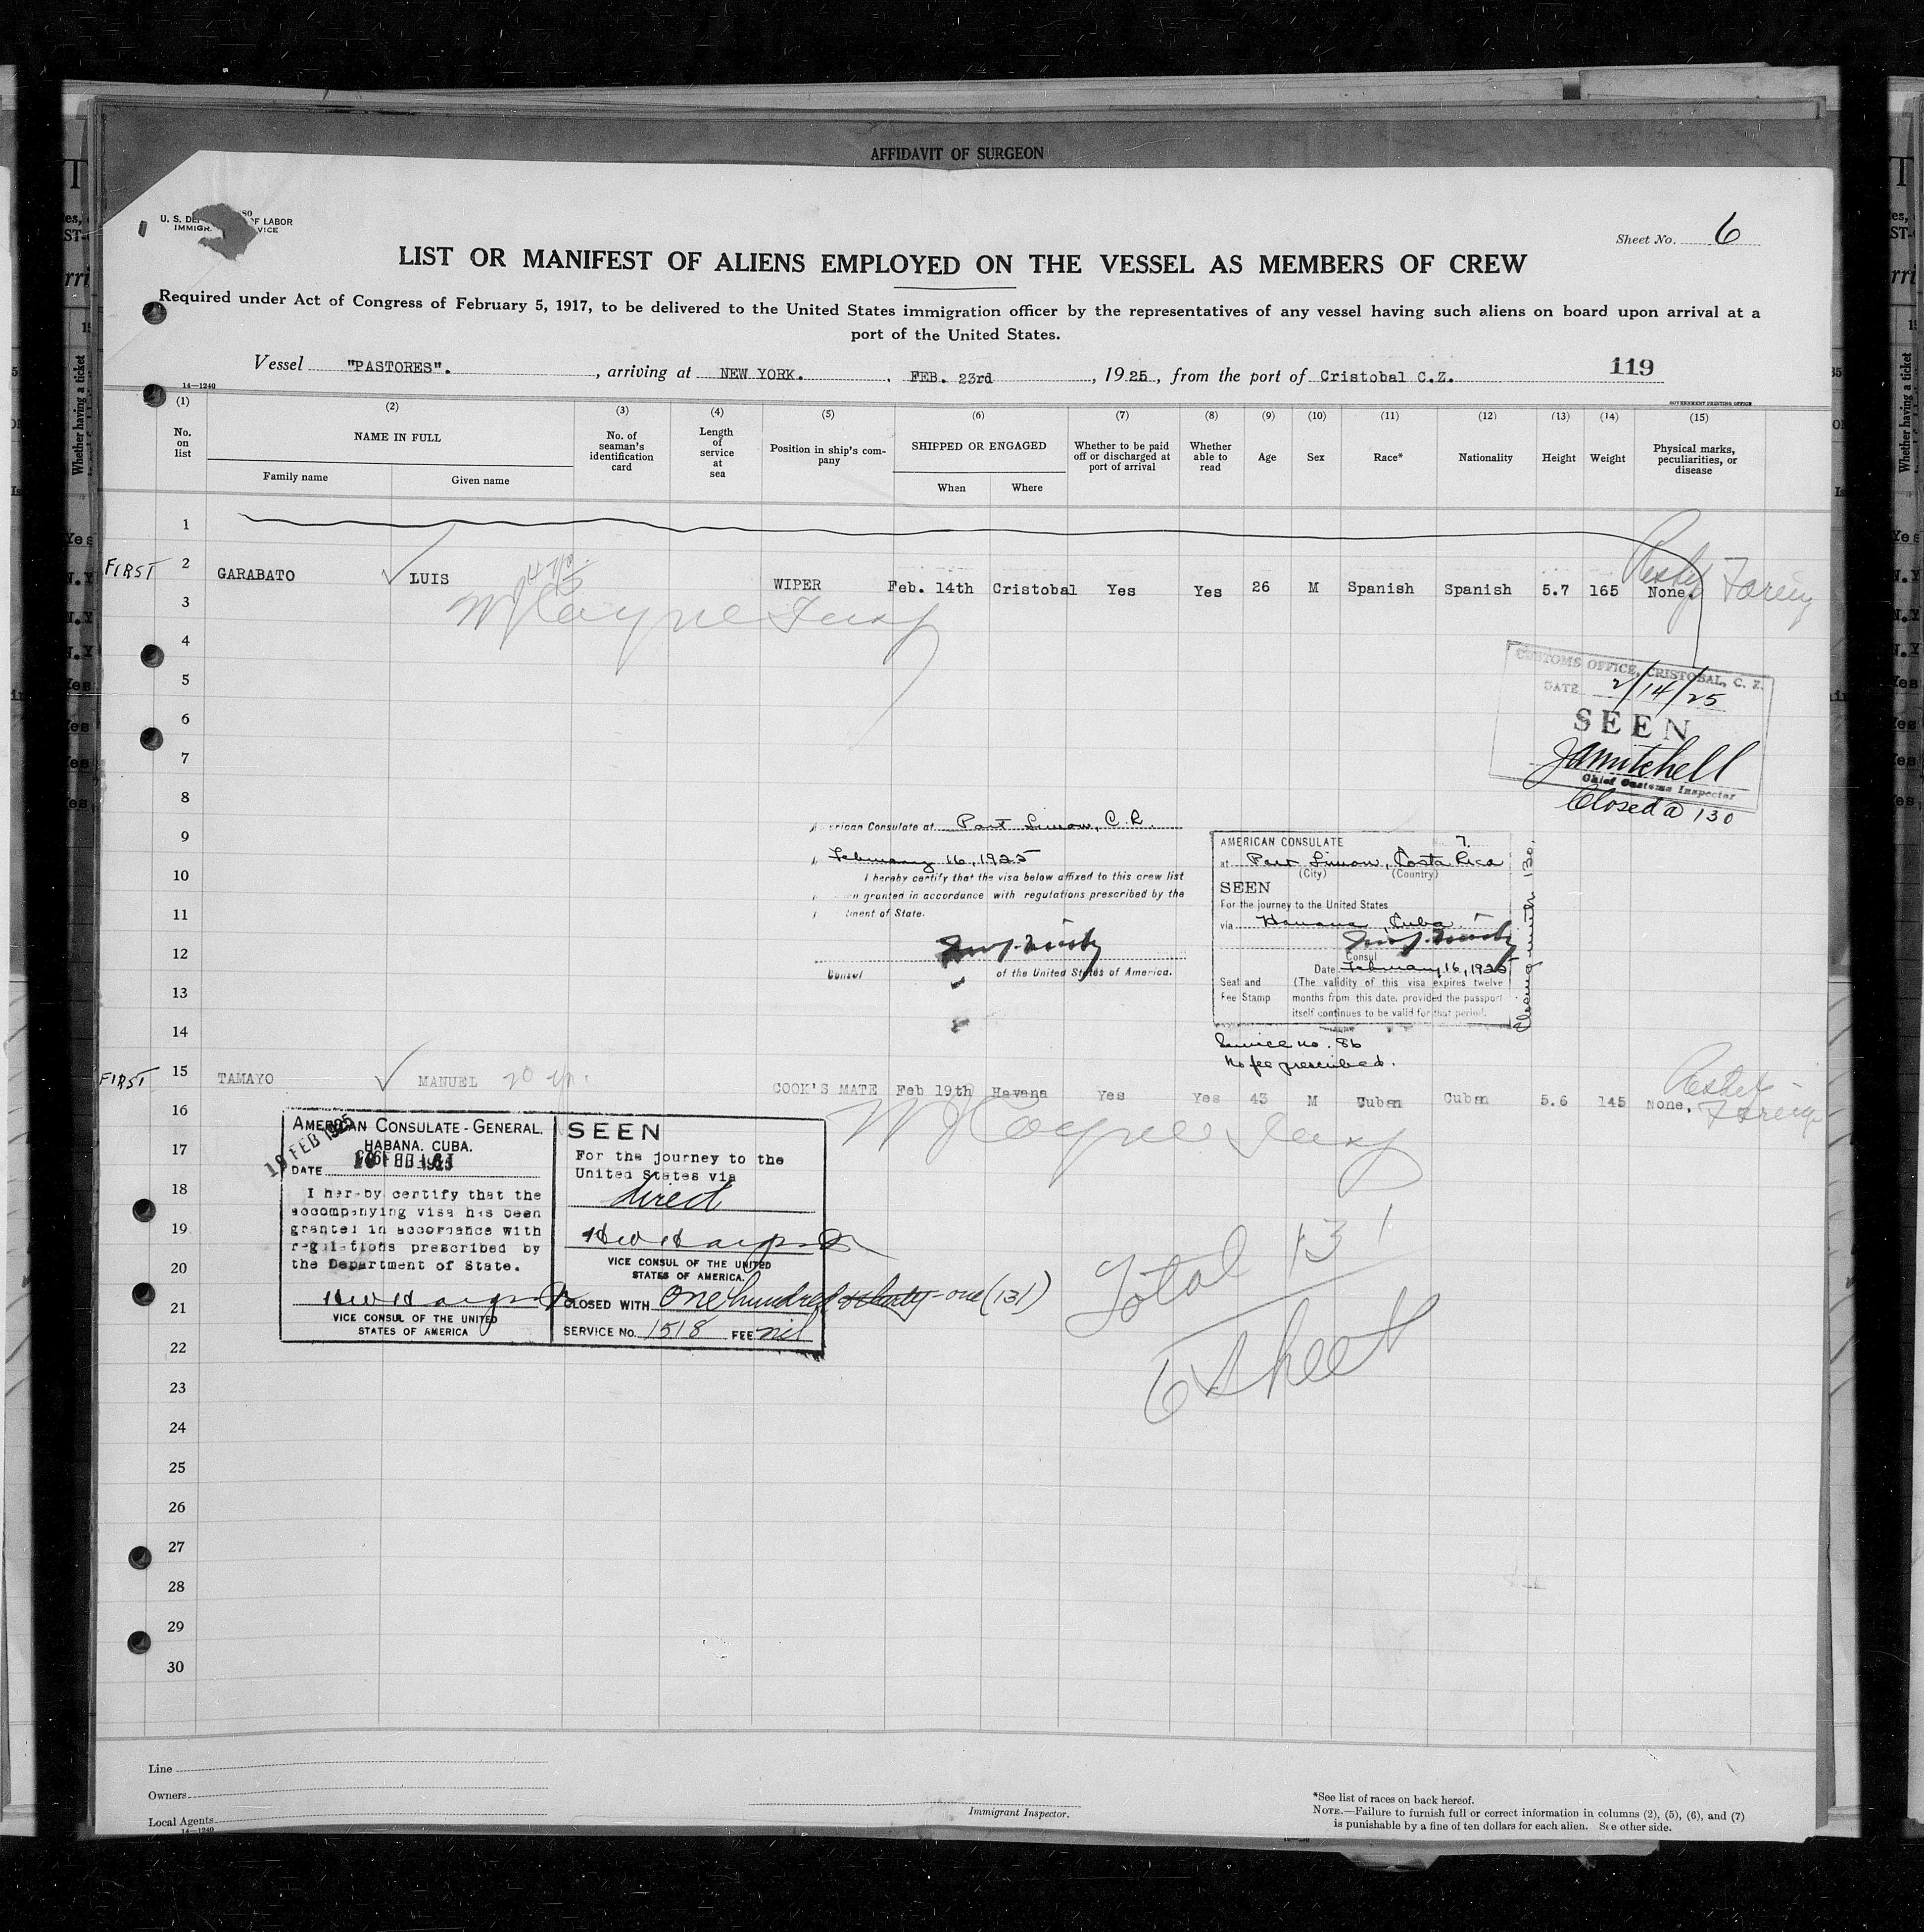 AFFIDAVIT OF SURGEON
U. S. DE OF LABOR
IMMIGR VICE
Sheet No. 6
LIST OR MANIFEST OF ALIENS EMPLOYED ON THE VESSEL AS MEMBERS OF CREW
Required under Act of Congress of February 5, 1917, to be delivered to the United States immigration officer by the representatives of any vessel having such aliens on board upon arrival at a
port of the United States.
Vessel "PASTORES". , arriving at NEW YORK. , FEB. 23rd , 1925, from the port of Cristobal C.Z.
119
14—1240
GOVERNMENT PRINTING OFFICE
(1) (2) (3) (4) (5) (6) (7) (8) (9) (10) (11) (12) (13) (14) (15)
No. on list
NAME IN FULL
Family name
Given name
No. of seaman's identification card
Length of service at sea
Position in ship's company
SHIPPED OR ENGAGED
When
Where
Whether to be paid off or discharged at port of arrival
Whether able to read
Age
Sex
Race*
Nationality
Height
Weight
Physical marks, peculiarities, or disease
1
FIRST 2 GARABATO LUIS WIPER Feb. 14th Cristobal Yes Yes 26 M Spanish Spanish 5.7 165 None.
3
4
5
6
7
8
CUSTOMS OFFICE, CRISTOBAL, C. Z.
DATE 2/14/25
SEEN
JAMitchell
Chief Customs Inspector
Closed @ 130
9
10
11
12
13
14
American Consulate at Port Limon, C.R.
February 16, 1925
I hereby certify that the visa below affixed to this crew list
en granted in accordance with regulations prescribed by the
ment of State.
Consul of the United States of America.
AMERICAN CONSULATE No. 7.
at Port Limon, Costa Rica
(City) (Country)
SEEN
For the journey to the United States
via Havana, Cuba
Consul
Date February 16, 1925
Seal and Fee Stamp
(The validity of this visa expires twelve
months from this date, provided the passport
itself continues to be valid for that period.
Closing with 130.
Service no. 86
No fee prescribed.
FIRST 15 TAMAYO MANUEL 20 COOK'S MATE Feb 19th Havana Yes Yes 43 M Cuban Cuban 5.6 145 None.
16
17
18
19
20
21
22
23
24
25
26
27
28
29
30
AMERICAN CONSULATE-GENERAL.
HABANA. CUBA.
19 FEB 1925
DATE
I hereby certify that the
accompanying visa has been
granted in accordance with
regulations prescribed by
the Department of State.
VICE CONSUL OF THE UNITED
STATES OF AMERICA
SEEN
For the journey to the
United States via
direct
VICE CONSUL OF THE UNITED
STATES OF AMERICA.
CLOSED WITH One hundred & thirty-one (131)
SERVICE No. 1518 FEE nil
Total 131
6 Sheet
Line
Owners
Local Agents
14—1240
Immigrant Inspector.
*See list of races on back hereof.
NOTE.—Failure to furnish full or correct information in columns (2), (5), (6), and (7)
is punishable by a fine of ten dollars for each alien. See other side.